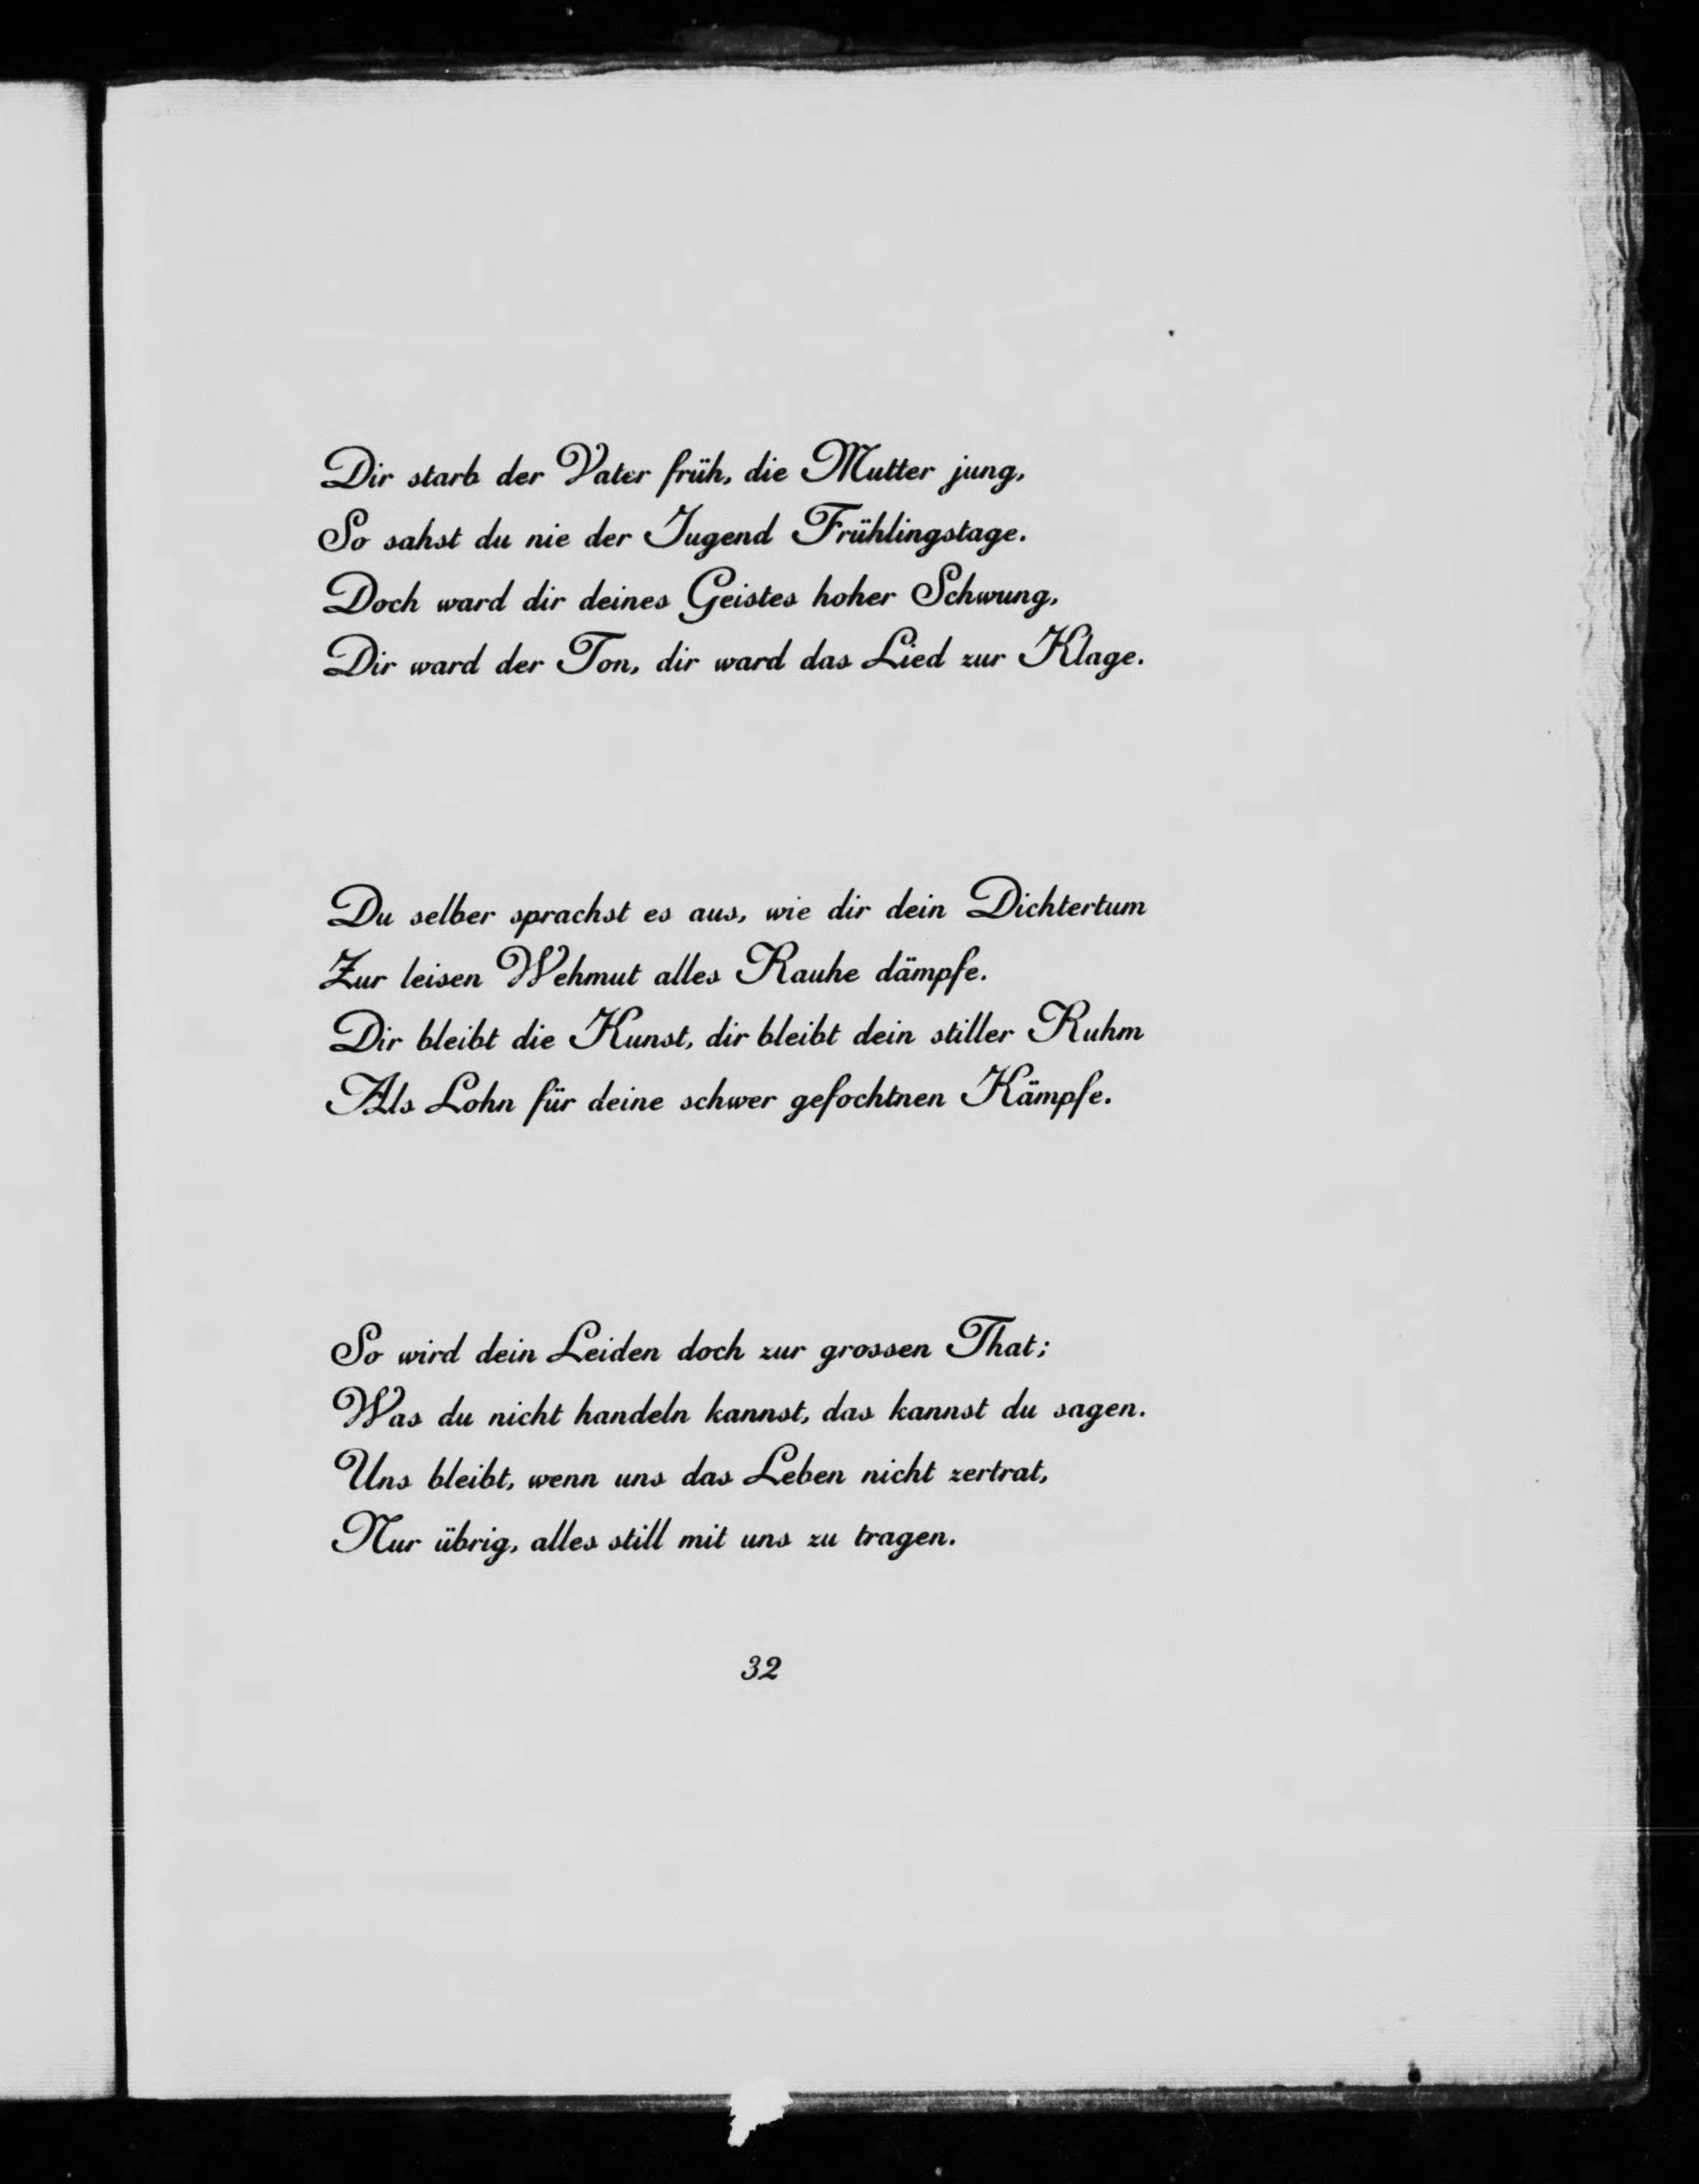 Dir starb der Vater früh, die Mutter jung,
So sahst du nie der Jugend Frühlingstage.
Doch ward dir deines Geistes hoher Schwung,
Dir ward der Ton, dir ward das Lied zur Klage.
Du selber sprachst es aus, wie dir dein Dichtertum
Zur leisen Wehmut alles Rauhe dämpfe.
Dir bleibt die Kunst, dir bleibt dein stiller Ruhm
Als Lohn für deine schwer gefochtnen Kämpfe.
So wird dein Leiden doch zur grossen That;
Was du nicht handeln kannst, das kannst du sagen.
Uns bleibt, wenn uns das Leben nicht zertrat,
Nur übrig, alles still mit uns zu tragen.
32